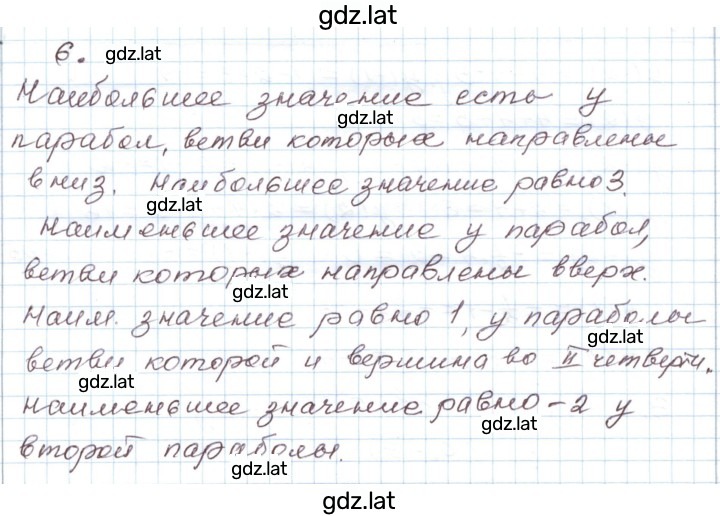 gdz.lat
6. gdz.lat
Наибольшее значение есть у
gdz.lat
парабол, ветви которых направлены
вниз. Наибольшее значение равно 3.
gdz.lat
Наименьшее значение у парабол,
ветви которых направлены вверх.
gdz.lat
Наим. значение равно 1, у параболы
gdz.lat
ветви которой и вершина во II четверти.
gdz.lat
Наименьшее значение равно -2 у
gdz.lat
второй параболы.
gdz.lat
gdz.lat